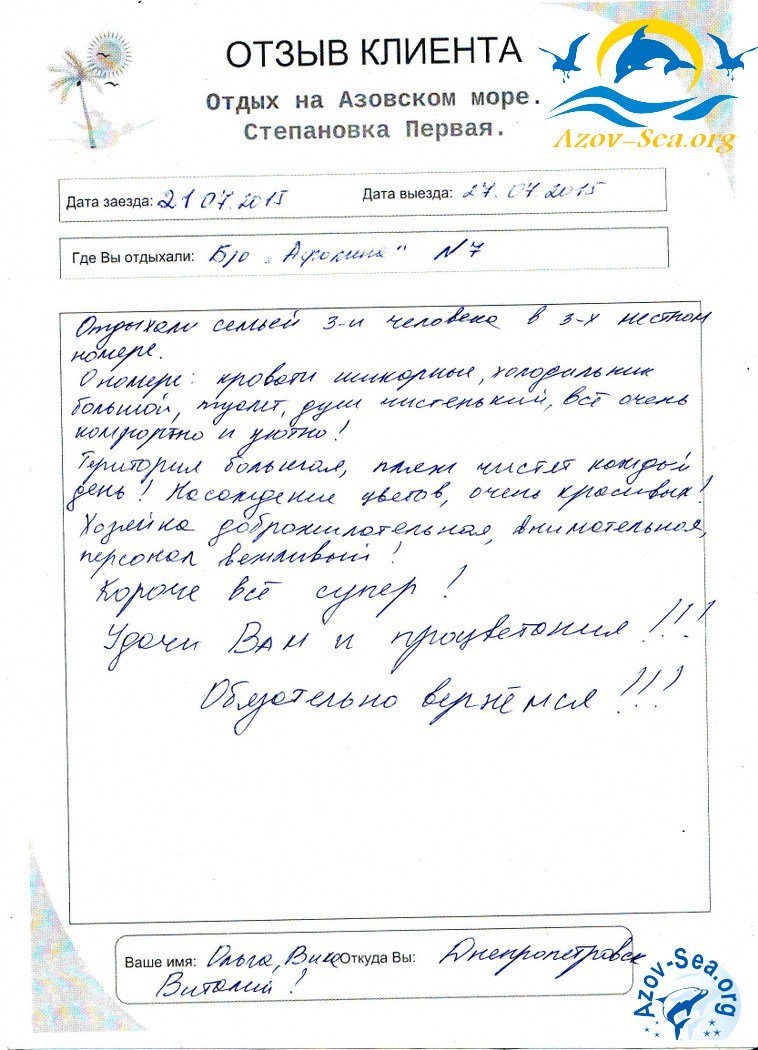 ОТЗЫВ КЛИЕНТА
Отдых на Азовском море.
Степановка Первая.
Azov-Sea.org
Дата заезда: 21 07.2015 Дата выезда: 27.07.2015
Где Вы отдыхали: Б/о „Афалина" N7
Отдыхали семьей 3-и человека в 3-х местном
номере.
О номере: кровати шикарные, холодильник
большой, туалет, душ чистенький, всё очень
комфортно и уютно!
Територия большая, пляж чистят каждый
день! Насаждение цветов, очень красивых!
Хозяйка доброжелательная, внимательная,
персонал вежливый!
Короче всё супер!
Удачи Вам и процветания!!!
Обязательно вернёмся!!!
Ваше имя: Ольга, Вика Откуда Вы: Днепропетровск
Виталий!
Azov-Sea.org